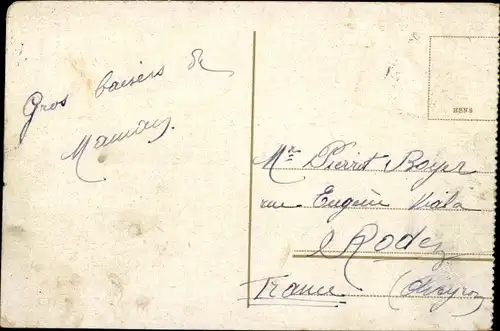 Gros baisers de
Maman.
HENS
Mr Pierrot Boyer
rue Eugène Viala
Rodez
France (Aveyron)